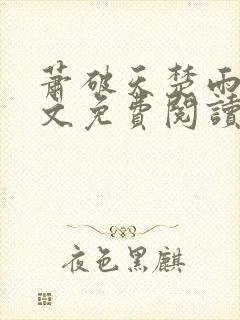 蕭破天楚雨
文免費閱讀
夜色黑麒